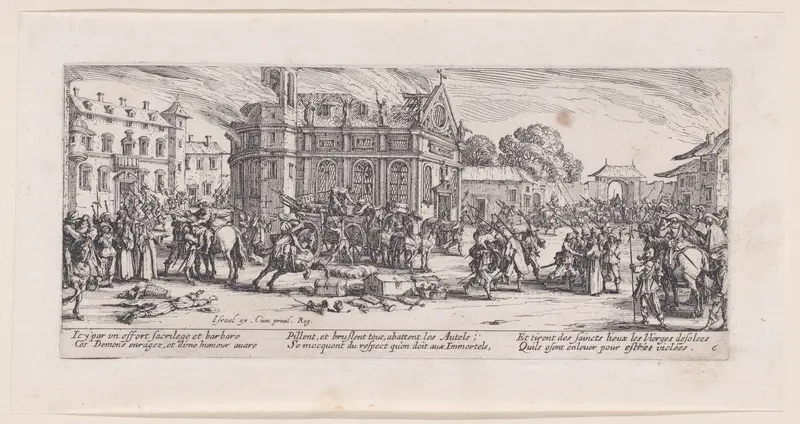 Israel ex. Cum privil. Reg.
Icy par vn effort sacrilege et barbare
Ces Demons enragez, et d'une humeur auare
Pillent, et bruslent tout, abattent les Autels ;
Se mocquent du respect qu'on doit aux Immortels,
Et tirent des saincts lieux les Vierges desolees
Quils osent enleuer pour estre violées .
6